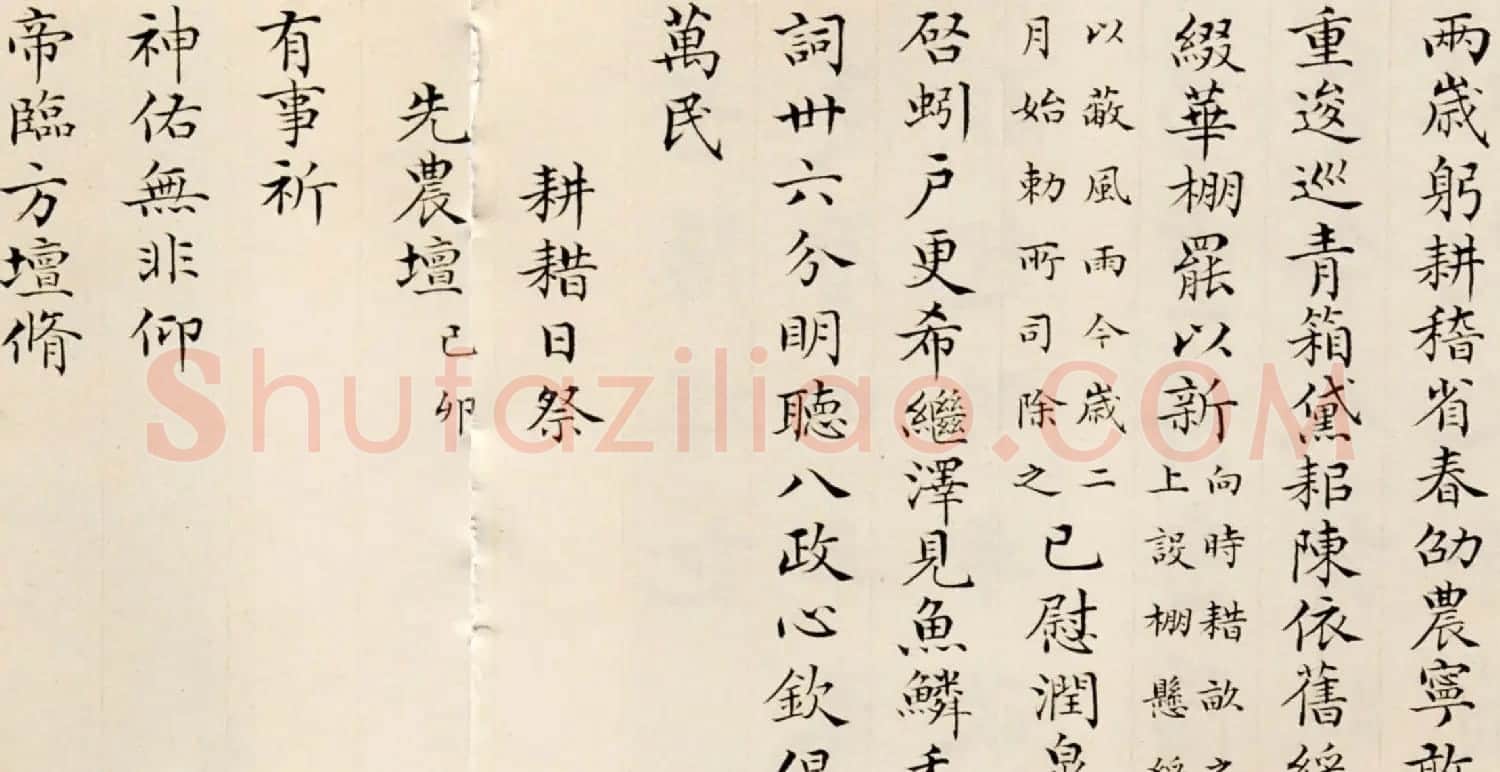 兩歳躬耕稽省春劭農寧敢
重逡巡青箱黛耜陳依舊綵
綴華棚罷以新
向時耤畝之
上設棚懸綵
以蔽風雨今歳二
月始勅所司除之
已慰潤泉
啓蚓戶更希繼澤見魚鱗
詞卅六分明聽八政心欽
萬民
耕耤日祭
先農壇
己卯
有事祈
神佑無非仰
帝臨方壇脩
shufaziliao.COM